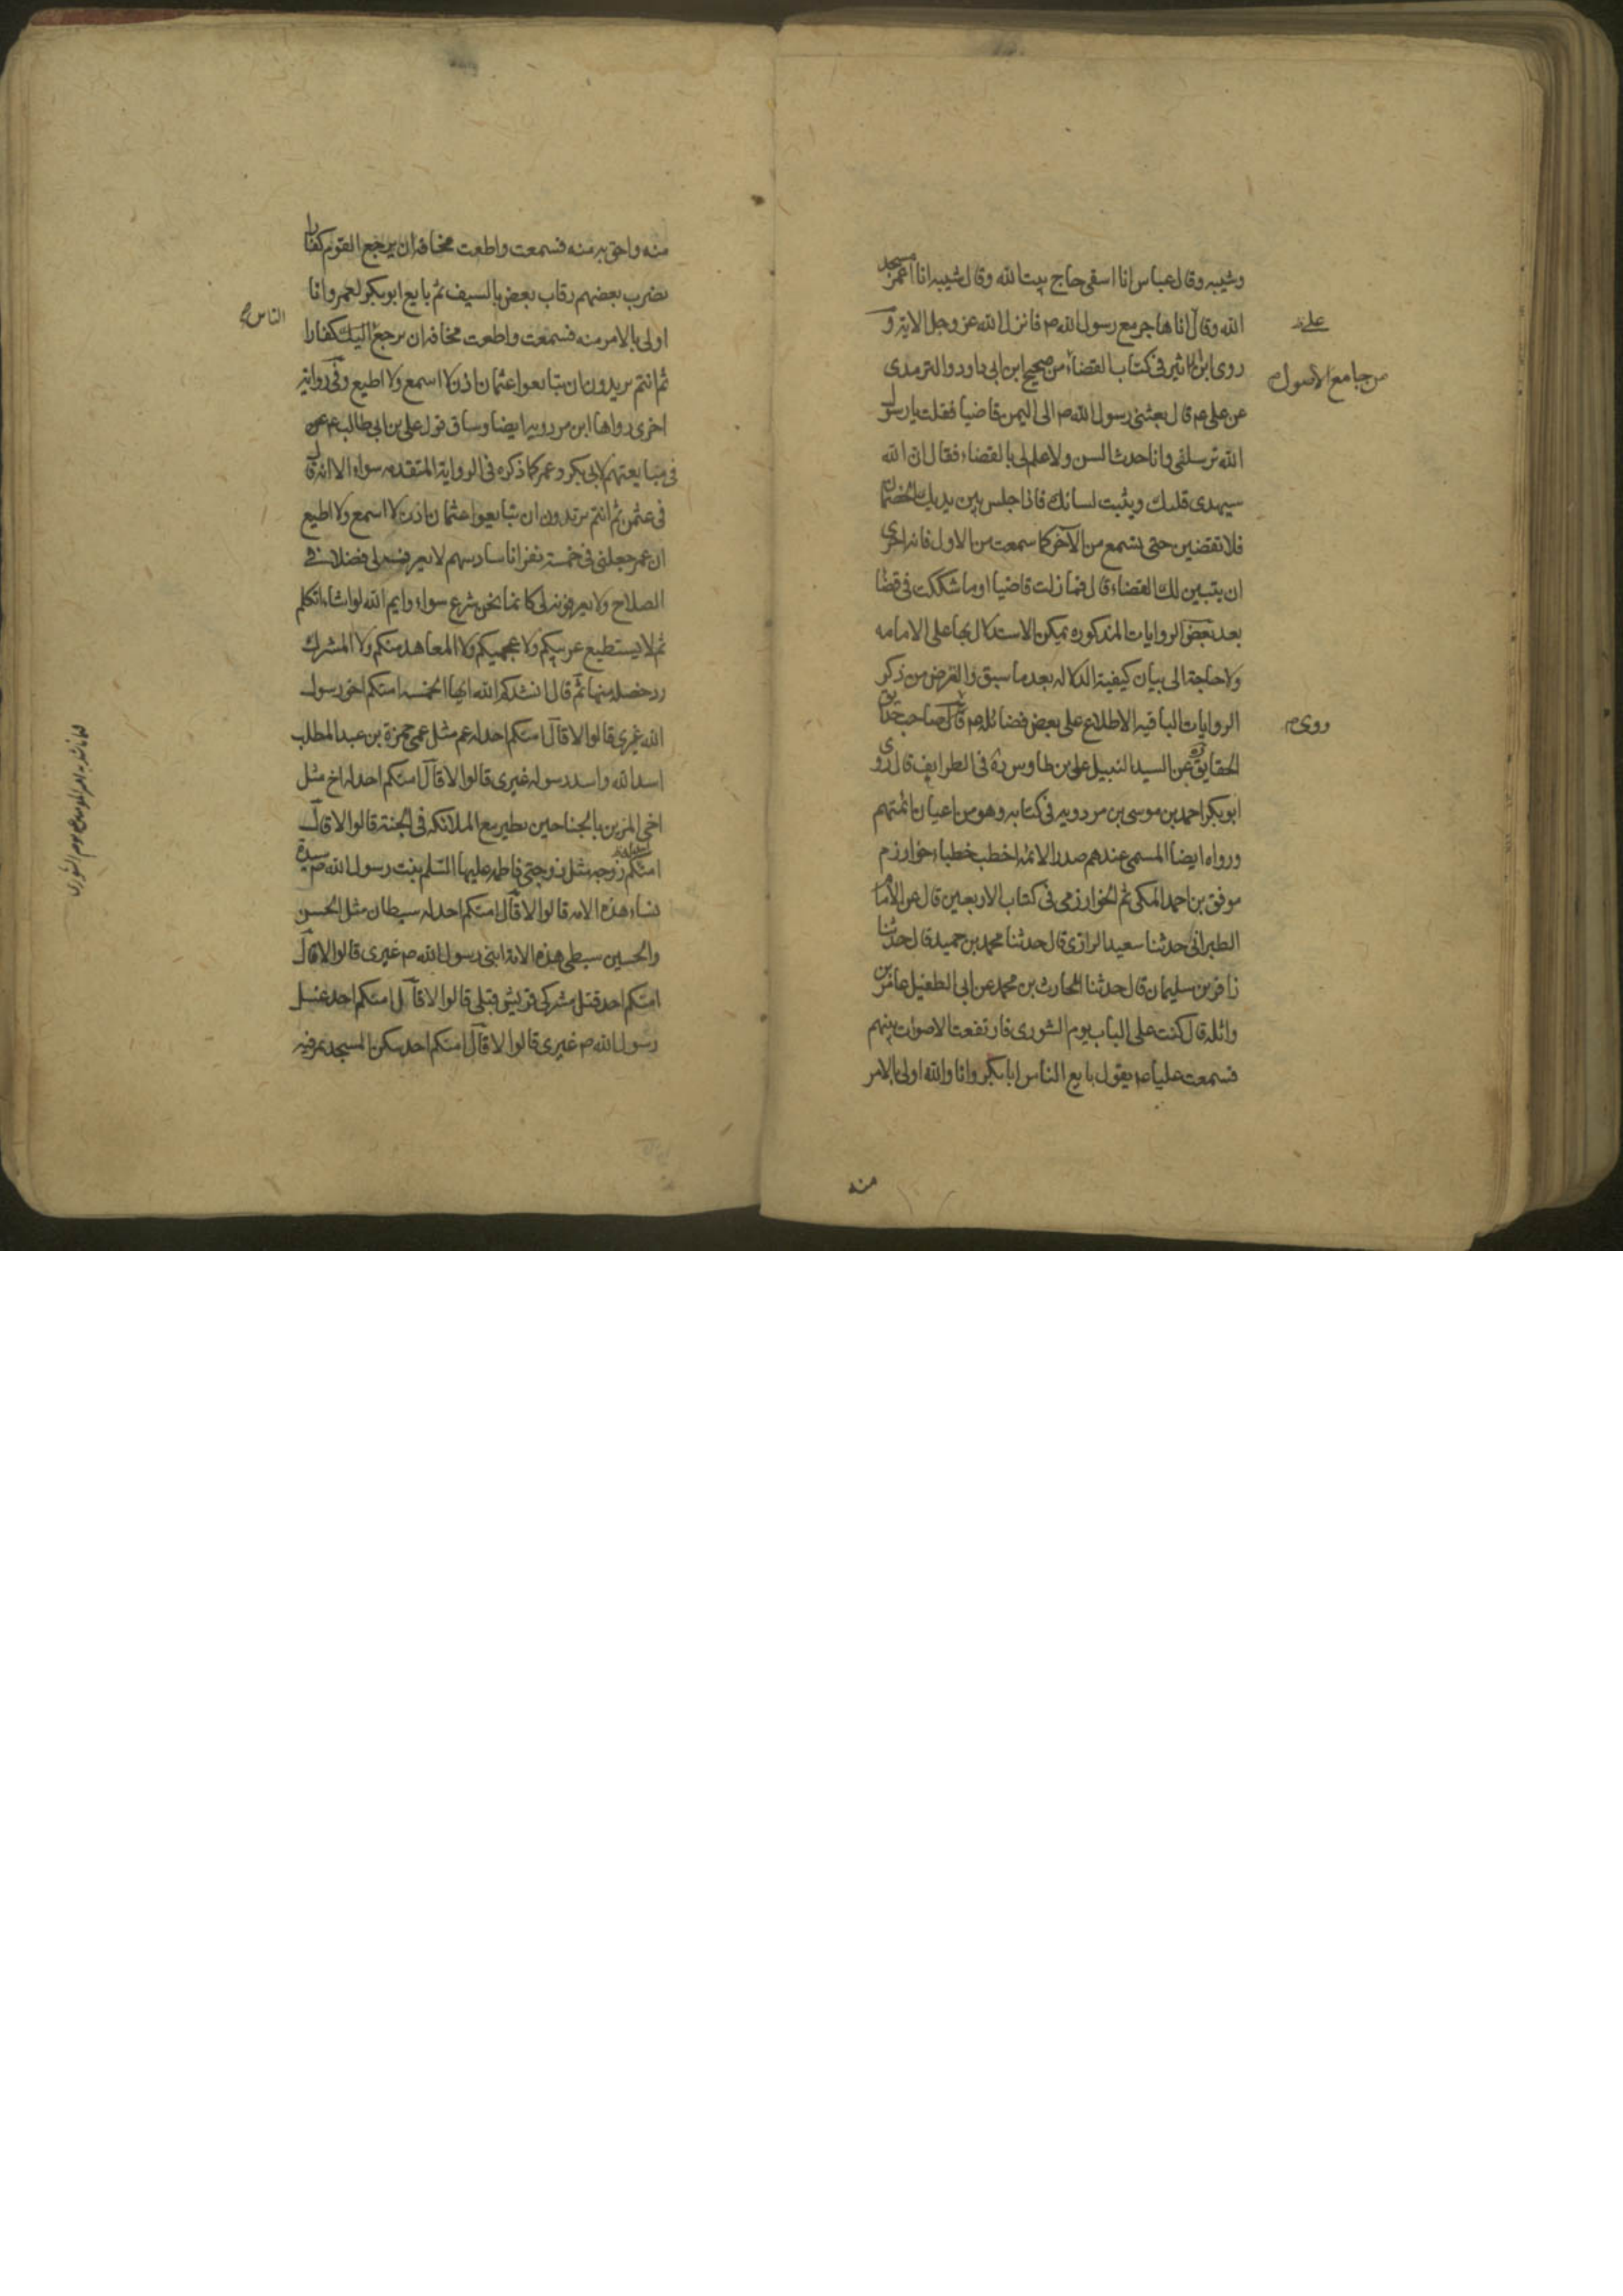 وشيبه وقال عباس انا اسقى حاج بيت الله وقال شيبه انا اعمر مسجد
الله وقال انا هاجر مع رسول الله ص فانزل الله عز وجل الاية و
على
روى ابن الاثير فى كتاب القضاء من صحيح ابن ابى داود والترمدى
من جامع الاصول
عن على ع قال بعثنى رسول الله ص الى اليمن قاضيا فقلت يا رسول
الله ترسلنى وانا حدث السن ولا علم لى بالقضاء فقال ان الله
سيهدى قلبك ويثبت لسانك فاذا جلس بين يديك الخصمان
فلا تقضين حتى تسمع من الآخر كما سمعت من الاول فانه احرى
ان يتبين لك القضاء قال فما زلت قاضيا او ما شككت فى قضاء
بعد بعض الروايات المذكوره يمكن الاستدلال بها على الامامه
ولا حاجة الى بيان كيفية الدلاله بعد ما سبق والغرض من ذكر
الروايات الباقيه الاطلاع على بعض فضائله ع قال صاحب حدايق
روى
الحقايق عن السيد النبيل على بن طاوس ره فى الطرايف قال روى
ابو بكر احمد بن موسى بن مردويه فى كتابه وهو من اعيان ائمتهم
ورواه ايضا المسمى عندهم صدر الائمه اخطب خطباء خوارزم
موفق بن احمد المكى ثم الخوارزمى فى كتاب الاربعين قال عن الامام
الطبرانى حدثنا سعيد الرازى قال حدثنا محمد بن حميد قال حدثنا
زافر بن سليمان قال حدثنا الحارث بن محمد عن ابى الطفيل عامر بن
واثله قال كنت على الباب يوم الشورى فارتفعت الاصوات بينهم
فسمعت عليا ع يقول بايع الناس ابا بكر وانا والله اولى بالامر
منه
منه واحق به منه فسمعت واطعت مخافة ان يرجع القوم كفارا
يضرب بعضهم رقاب بعض بالسيف ثم بايع ابو بكر لعمر وانا
اولى بالامر منه فسمعت واطعت مخافة ان يرجع اليك كفارا
الناس
ثم انتم تريدون ان تبايعوا عثمان اذن لا اسمع ولا اطيع وفى رواية
اخرى رواها ابن مردويه ايضا وساق قول على بن ابى طالب ع عن
فى مبايعتهم لابى بكر وعمر كما ذكره فى الرواية المتقدمه سواء الا انه قال
فى عثمن ثم انتم تريدون ان تبايعوا عثمان اذن لا اسمع ولا اطيع
ان عمر جعلنى فى خمسة نفر انا سادسهم لا يعرف لى فضلا فى
الصلاح ولا يعرفونه لى كانما نحن شرع سواء وايم الله لو اشاء اتكلم
ثم لا يستطيع عربيكم ولا عجميكم ولا المعاهد منكم ولا المشرك
رد خصلة منها ثم قال انشدكم الله ايها الخمسه امنكم اخو رسول
الله غيرى قالوا لا قال امنكم احد له عم مثل عمى حمزة بن عبد المطلب
اسد الله واسد رسوله غيرى قالوا لا قال امنكم احد له اخ مثل
اخى المزين بالجناحين يطير مع الملائكه فى الجنة قالوا لا قال
امنكم احد له زوجة مثل زوجتى فاطمه عليها السلم بنت رسول الله ص سيدة
نساء هذه الامه قالوا لا قال امنكم احد له سبطان مثل الحسن
والحسين سبطى هذه الامة ابنى رسول الله ص غيرى قالوا لا قال
امنكم احد قتل مشركى قريش قبلى قالوا لا قال امنكم احد غسل
رسول الله ص غيرى قالوا لا قال امنكم احد سكن المسجد يمر فيه
يوم الشورى